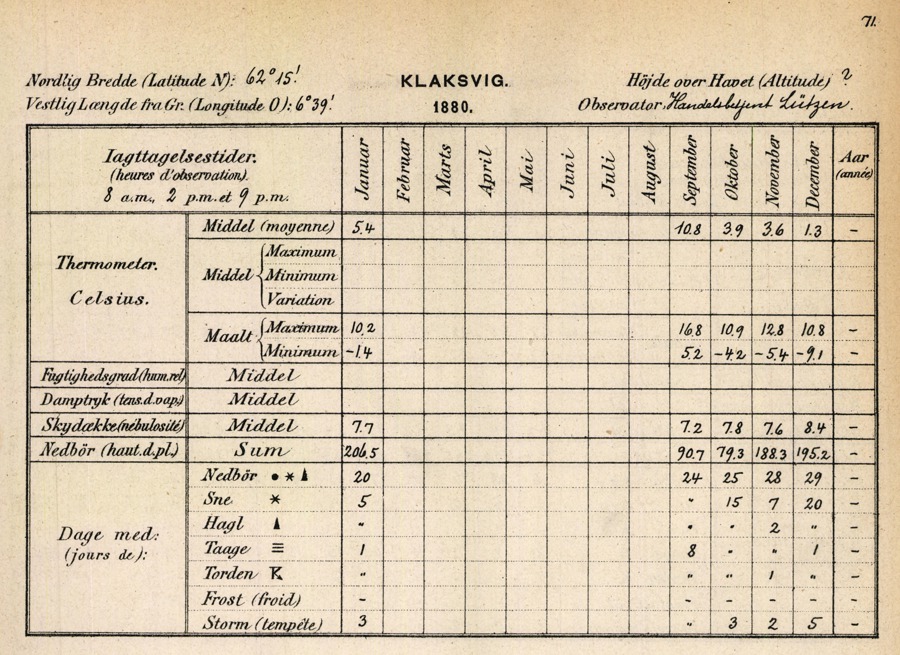 71.
Nordlig Bredde (Latitude N): 62°15'.
KLAKSVIG.
Höjde over Havet (Altitude) ?
Vestlig Længde fra Gr. (Longitude O): 6°39'.
1880.
Observator: Handelsbetjent Lützen.
Iagttagelsestider.
(heures d'observation).
8 a.m., 2 p.m. et 9 p.m.
Januar Februar Marts April Mai Juni Juli August September Oktober November December Aar (année)
Thermometer.
Celsius.
Middel (moyenne) 5.4 10.8 3.9 3.6 1.3 –
Middel { Maximum
Minimum
Variation
Maalt { Maximum 10.2 16.8 10.9 12.8 10.8 –
Minimum –1.4 5.2 –4.2 –5.4 –9.1 –
Fugtighedsgrad (hum. rel) Middel
Damptryk (tens. d. vap.) Middel
Skydække (nébulosité) Middel 7.7 7.2 7.8 7.6 8.4 –
Nedbör (haut. d. pl.) Sum 206.5 90.7 79.3 188.3 195.2 –
Dage med:
(jours de):
Nedbör ● * ▲ 20 24 25 28 29 –
Sne * 5 " 15 7 20 –
Hagl ▲ " " " 2 " –
Taage ≡ 1 8 " " 1 –
Torden K " " " 1 " –
Frost (froid) – – – – – –
Storm (tempête) 3 " 3 2 5 –